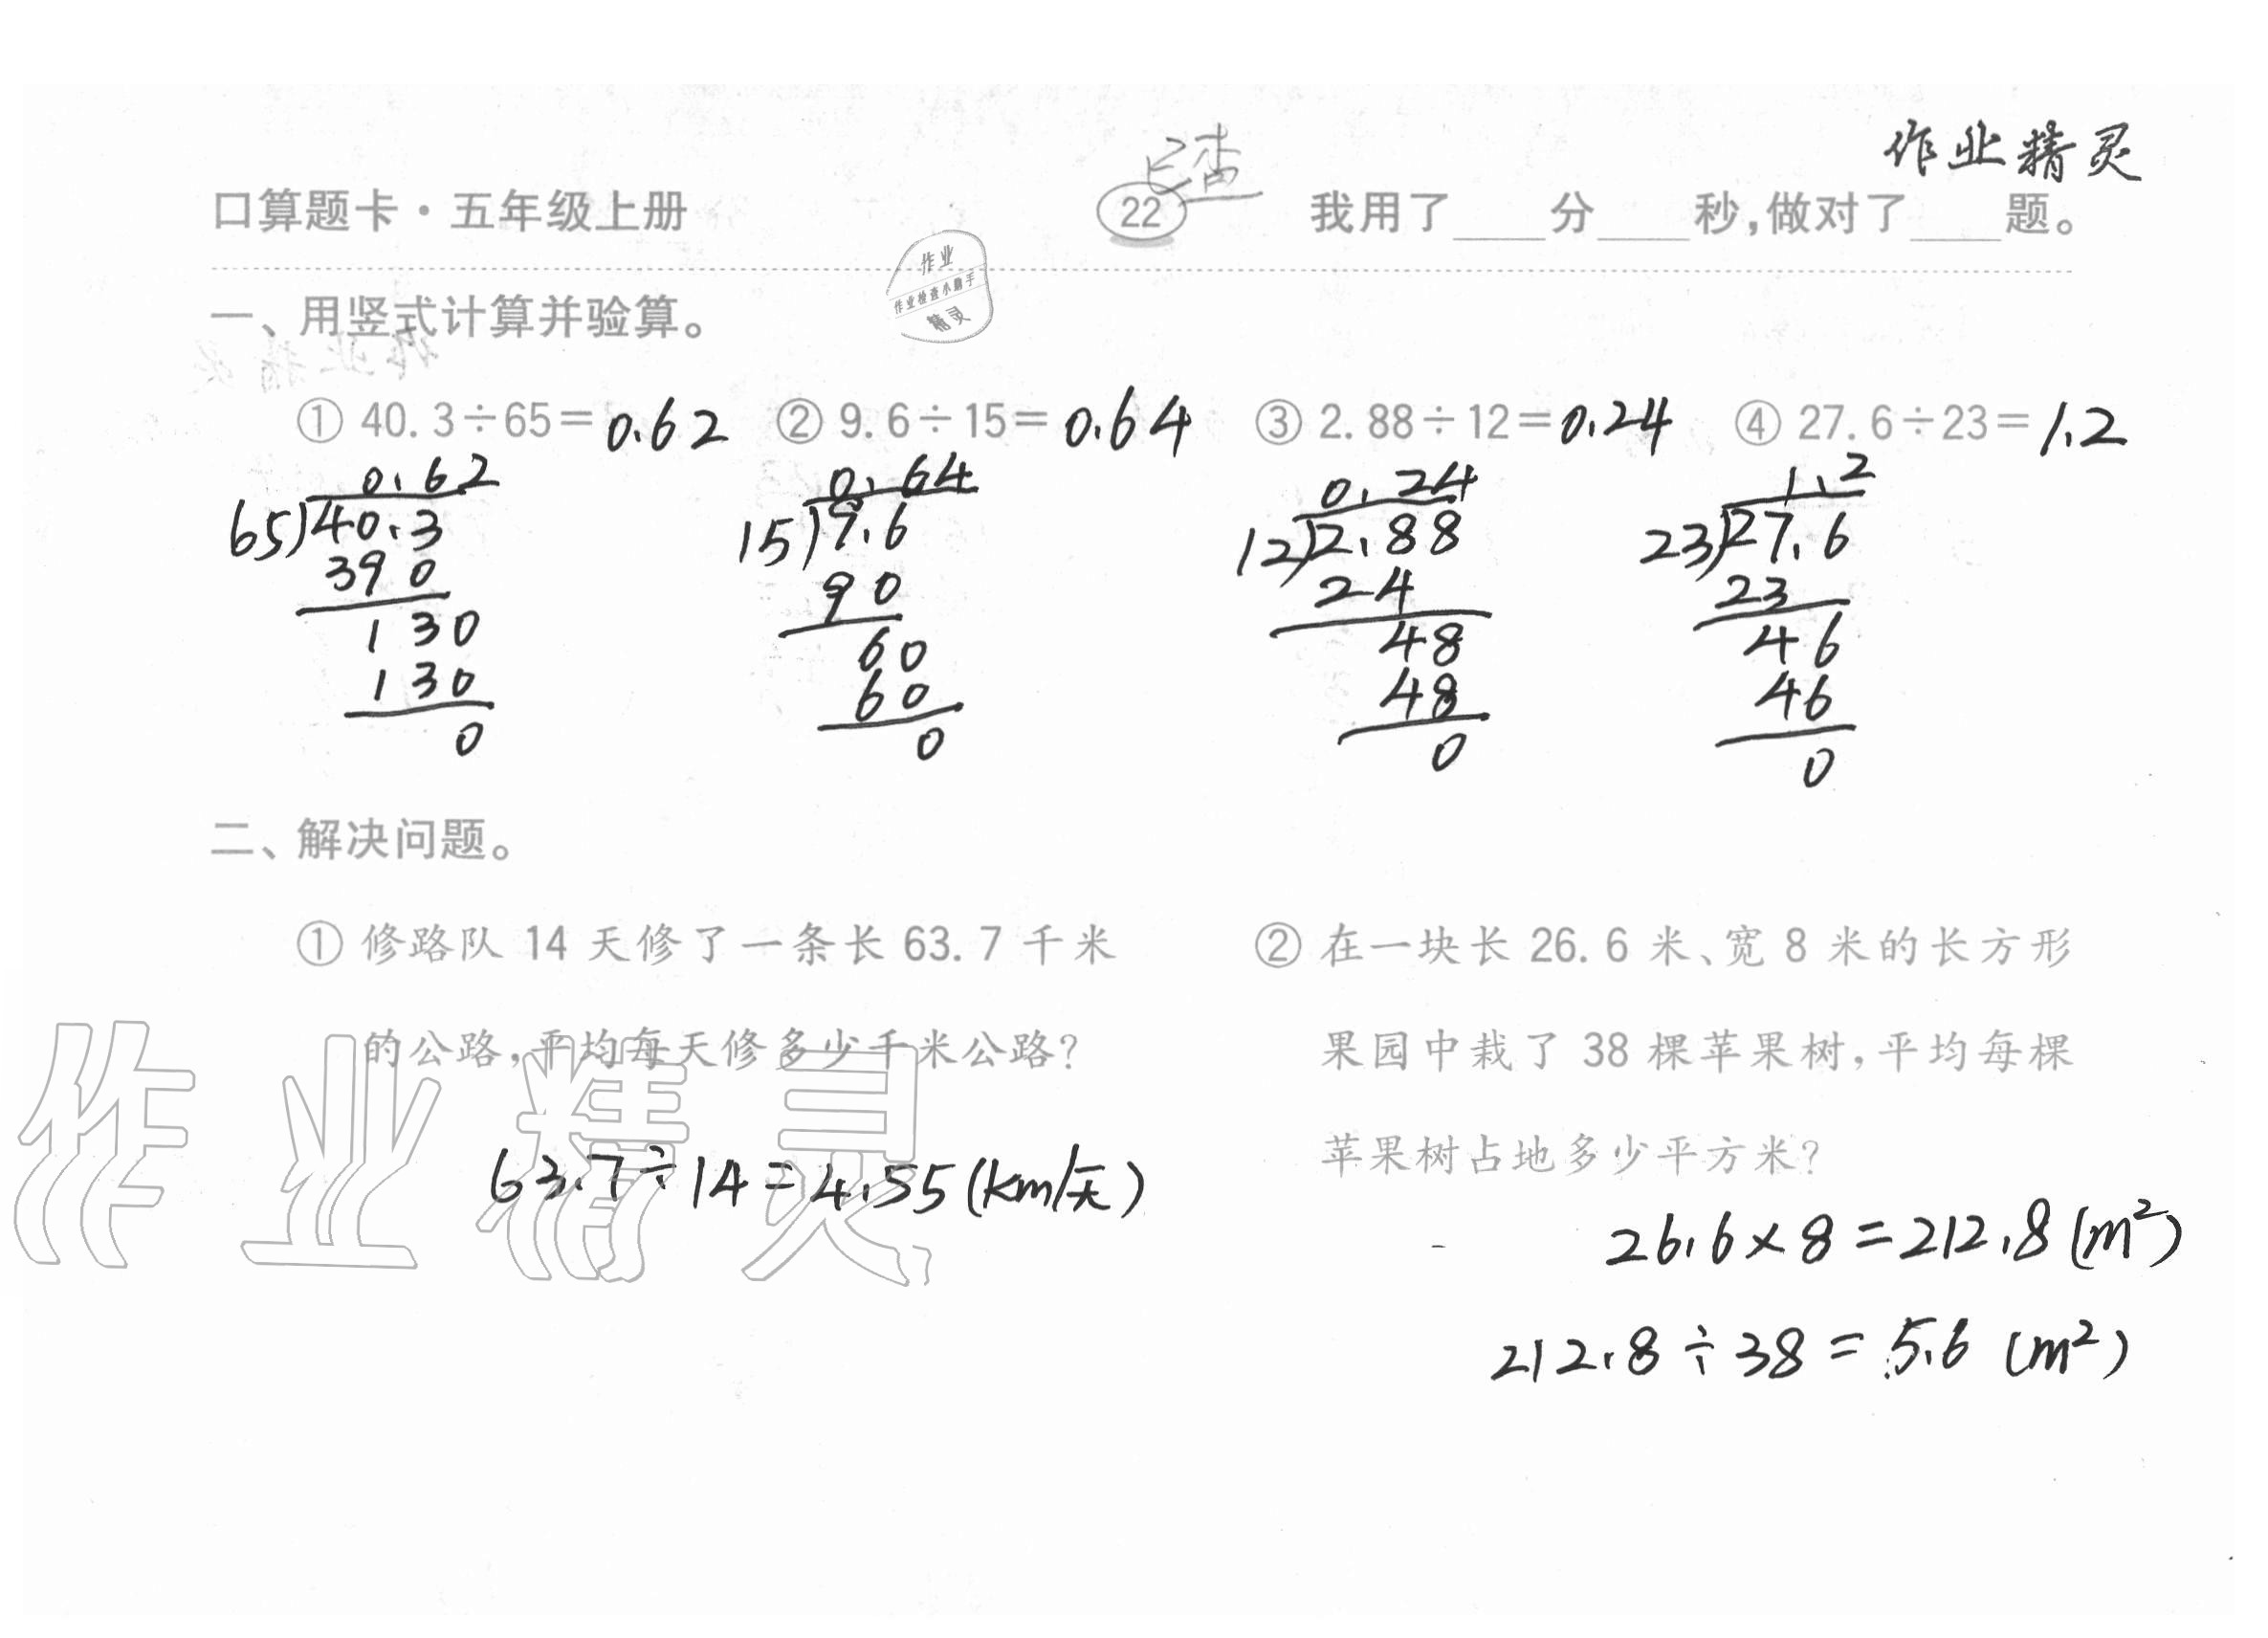 作业精灵
已查
口算题卡·五年级上册 22 我用了____分____秒,做对了____题。
作业
作业检查小助手
精灵
一、用竖式计算并验算。
① 40.3÷65=0.62 ② 9.6÷15=0.64 ③ 2.88÷12=0.24 ④ 27.6÷23=1.2
0.62 0.64 0.24 1.2
65)40.3 15)9.6 12)2.88 23)27.6
390 90 24 23
130 60 48 46
130 60 48 46
0 0 0 0
二、解决问题。
① 修路队 14 天修了一条长 63.7 千米
的公路,平均每天修多少千米公路?
63.7÷14=4.55(km/天)
② 在一块长 26.6 米、宽 8 米的长方形
果园中栽了 38 棵苹果树,平均每棵
苹果树占地多少平方米?
26.6×8=212.8(m²)
212.8÷38=5.6(m²)
作业精灵